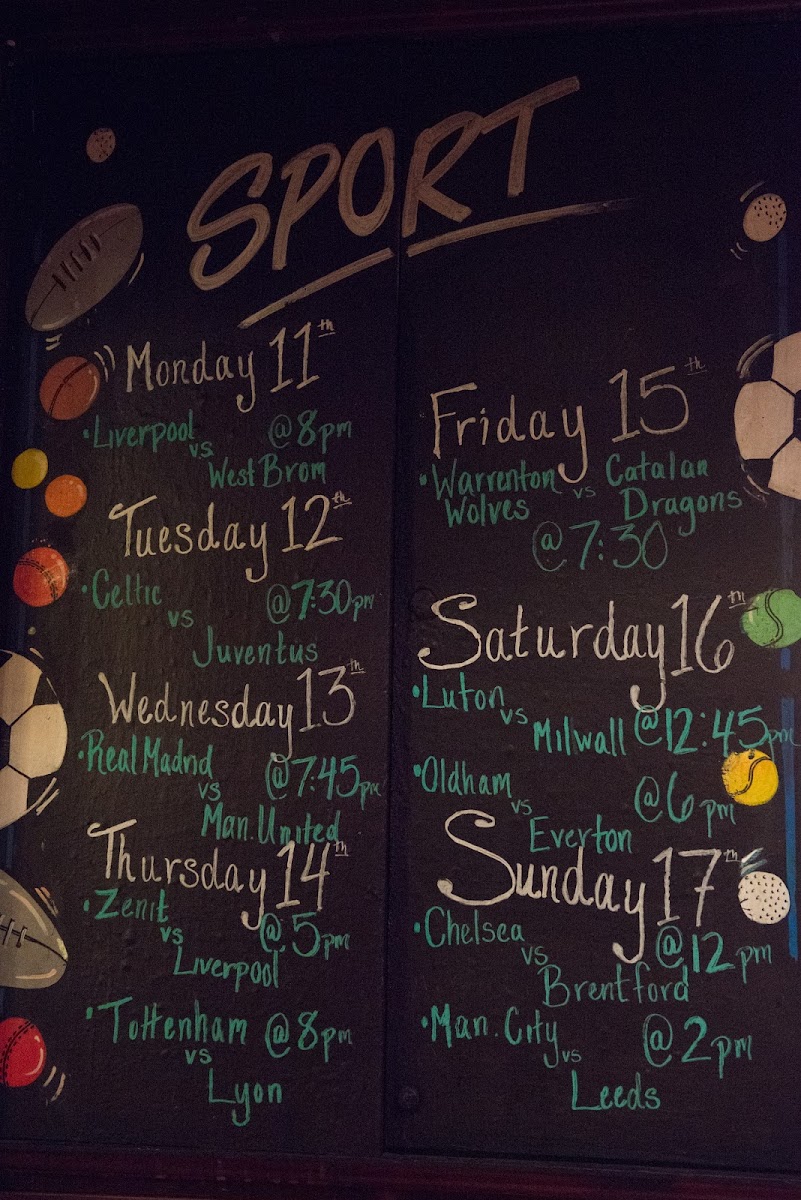 SPORT
Monday 11th
• Liverpool @ 8pm
vs
West Brom
Tuesday 12th
• Celtic @ 7:30pm
vs
Juventus
Wednesday 13th
• Real Madrid @ 7:45pm
vs
Man. United
Thursday 14th
• Zenit @ 5pm
vs
Liverpool
• Tottenham @ 8pm
vs
Lyon
Friday 15th
• Warrenton vs Catalan
Wolves Dragons
@ 7:30
Saturday 16th
• Luton
vs
Milwall @ 12:45pm
• Oldham @ 6pm
vs
Everton
Sunday 17th
• Chelsea @ 12pm
vs
Brentford
• Man. City @ 2pm
vs
Leeds